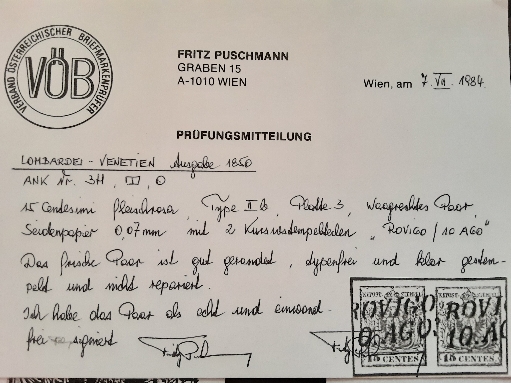 VERBAND ÖSTERREICHISCHER BRIEFMARKENPRÜFER
VÖB
FRITZ PUSCHMANN
GRABEN 15
A-1010 WIEN
Wien, am 7. VII. 1984
PRÜFUNGSMITTEILUNG
LOMBARDEI - VENETIEN Ausgabe 1850
ANK Nr. 3H,
15 Centesimi fleischrosa, Type II b, Platte 3, Waagrechtes Paar,
Seidenpapier 0,07mm mit 2 "ROVIGO / 10 AGO"
Das frische Paar ist gut gerandet, und klar gestem-
pelt und nicht repariert.
Ich habe das Paar als echt und einwand-
frei signiert
ROVIGO
10. AGO.
15 CENTES
ROVIGO
10. AGO.
15 CENTES